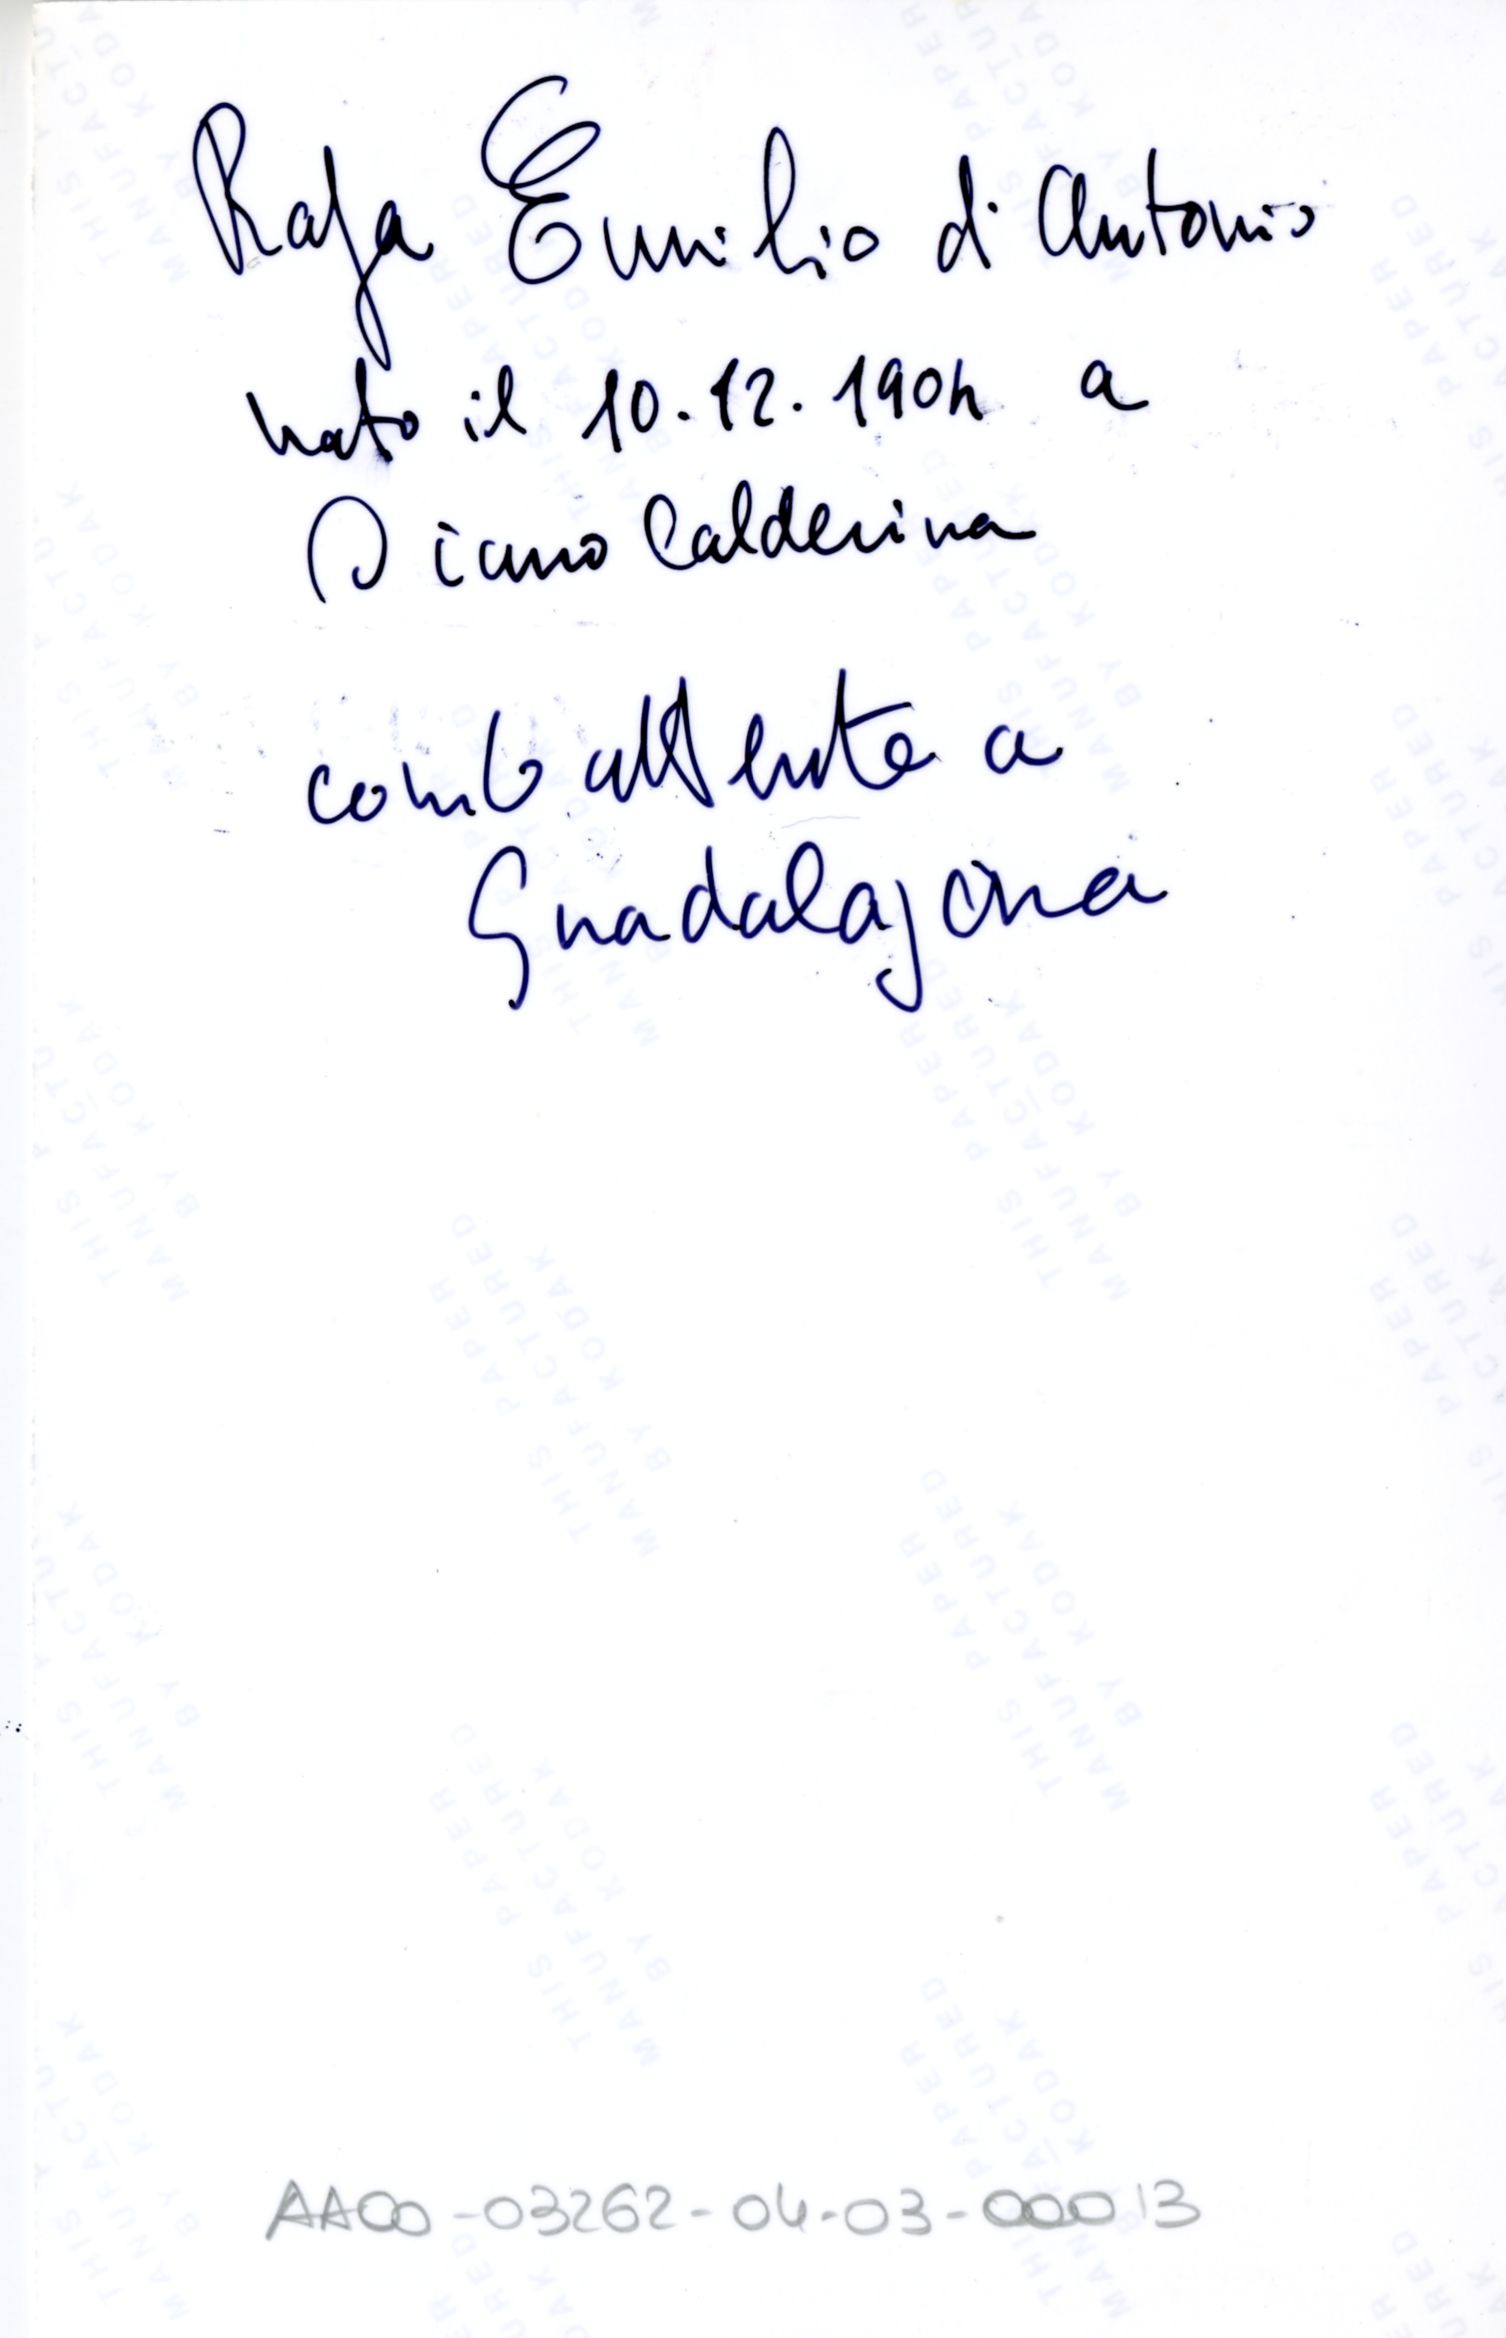 Rafa Emilio di Antonio
nato il 10.12.1904 a
Diano Calderina
combattente a
Guadalajara
AACO-03262-04-03-000013
THIS PAPER
MANUFACTURED
BY KODAK